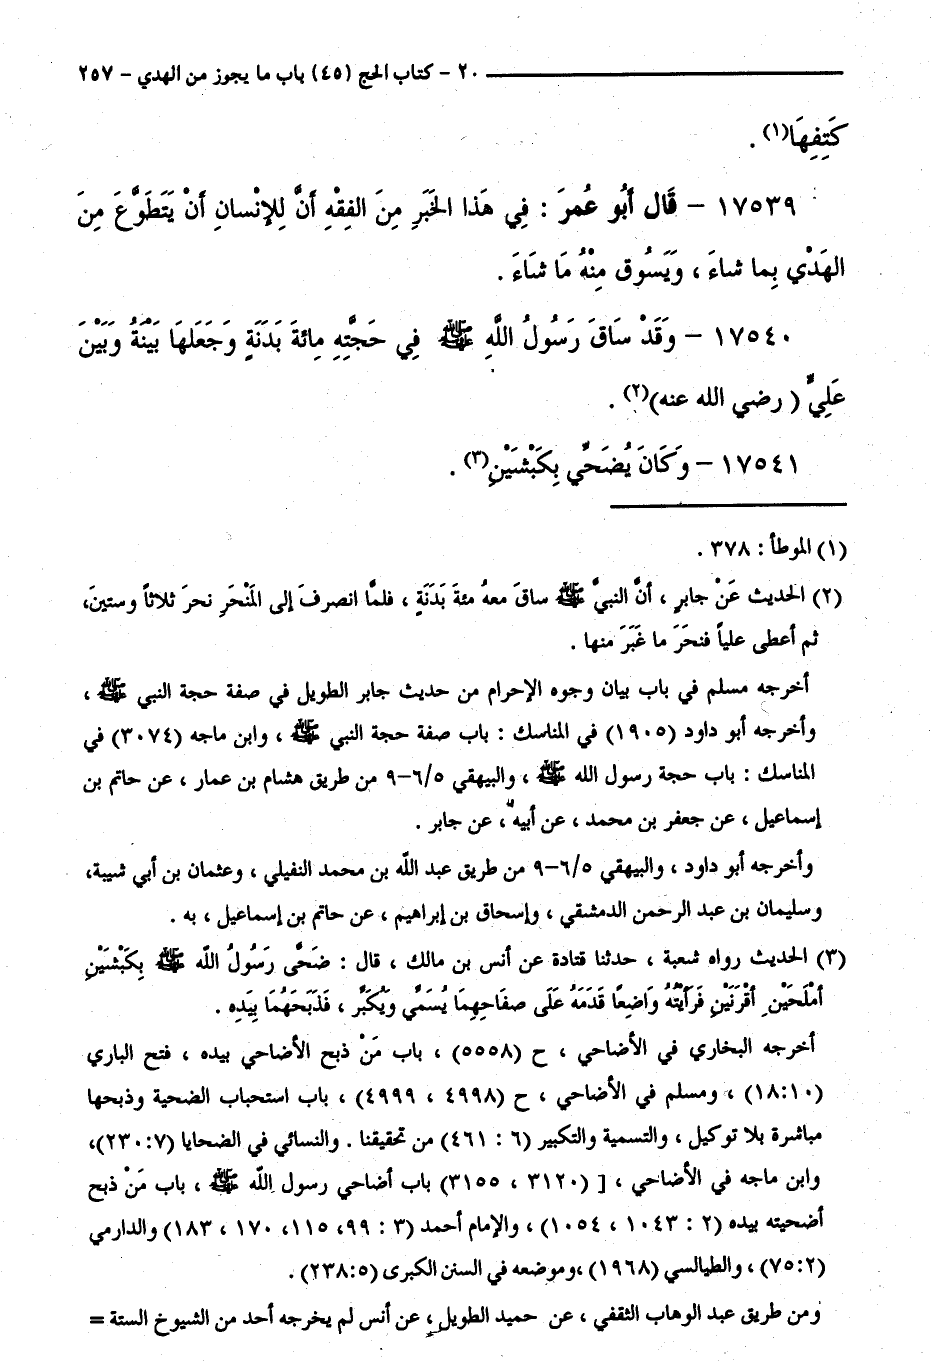 ٢٠ - كتاب الحج (٤٥) باب ما يجوز من الهدي - ٢٥٧
كَتِفِهَا(١) .
١٧٥٣٩ - قَالَ أَبُو عُمرَ : فِي هَذا الخَبَرِ مِنَ الفِقْهِ أَنَّ لِلإنْسانِ أَنْ يَتَطَوَّعَ مِنَ
الهَدْيِ بِما شاءَ ، وَيَسُوق مِنْهُ مَا شَاءَ .
١٧٥٤٠ - وَقَدْ سَاقَ رَسُولُ اللَّهِ ﷺ فِي حَجَّتِهِ مِائةَ بَدَنَةٍ وَجَعَلهَا بَيْنَهُ وَبَيْنَ
عَلِيٍّ ( رضي الله عنه)(٢) .
١٧٥٤١ - وَكَانَ يُضَحِّي بِكَبْشَيْنِ(٣) .
(١) الموطأ : ٣٧٨ .
(٢) الحديث عَنْ جابرٍ ، أنَّ النبيَّ ﷺ ساقَ معهُ مئةَ بَدَنَةٍ ، فلمَّا انصرفَ إلى المَنْحَرِ نحرَ ثلاثاً وستينَ،
ثم أعطى علياً فنحَرَ ما غَبَرَ منها .
أخرجه مسلم في باب بيان وجوه الإحرام من حديث جابر الطويل في صفة حجة النبي ﷺ ،
وأخرجه أبو داود (١٩٠٥) في المناسك : باب صفة حجة النبي ﷺ ، وابن ماجه (٣٠٧٤) في
المناسك : باب حجة رسول الله ﷺ ، والبيهقي ٦/٥-٩ من طريق هشام بن عمار ، عن حاتم بن
إسماعيل ، عن جعفر بن محمد ، عن أبيه ، عن جابر .
وأخرجه أبو داود ، والبيهقي ٦/٥-٩ من طريق عبد اللَّه بن محمد النفيلي ، وعثمان بن أبي شيبة،
وسليمان بن عبد الرحمن الدمشقي ، وإسحاق بن إبراهيم ، عن حاتم بن إسماعيل ، به .
(٣) الحديث رواه شعبة ، حدثنا قتادة عن أنس بن مالك ، قال : ضَحَّى رَسُولُ اللَّه ﷺ بِكَبْشَيْنِ
أمْلَحَيْنِ أَقْرَنَيْنِ فَرَأَيْتُهُ وَاضِعًا قَدَمَهُ عَلَى صفَاحِهِمَا يُسَمِّي ويُكَبِّر ، فَذَبَحَهُمَا بِيَدِه .
أخرجه البخاري في الأضاحي ، ح (٥٥٥٨) ، باب مَنْ ذبح الأضاحي بيده ، فتح الباري
(١٨:١٠) ، ومسلم في الأضاحي ، ح (٤٩٩٨ ، ٤٩٩٩) ، باب استحباب الضحية وذبحها
مباشرة بلا توكيل ، والتسمية والتكبير (٦ : ٤٦١) من تحقيقنا . والنسائي في الضحايا (٢٣٠:٧)،
وابن ماجه في الأضاحي ، [ (٣١٢٠ ، ٣١٥٥) باب أضاحي رسول اللَّه ﷺ ، باب مَنْ ذبح
أضحيته بيده (٢ : ١٠٤٣ ، ١٠٥٤) ، والإمام أحمد (٣ : ٩٩، ١١٥، ١٧٠ ، ١٨٣) والدارمي
(٧٥:٢) ، والطيالسي (١٩٦٨) ،وموضعه في السنن الكبرى (٢٣٨:٥) .
ومن طريق عبد الوهاب الثقفي ، عن حميد الطويل ، عن أنس لم يخرجه أحد من الشيوخ الستة =